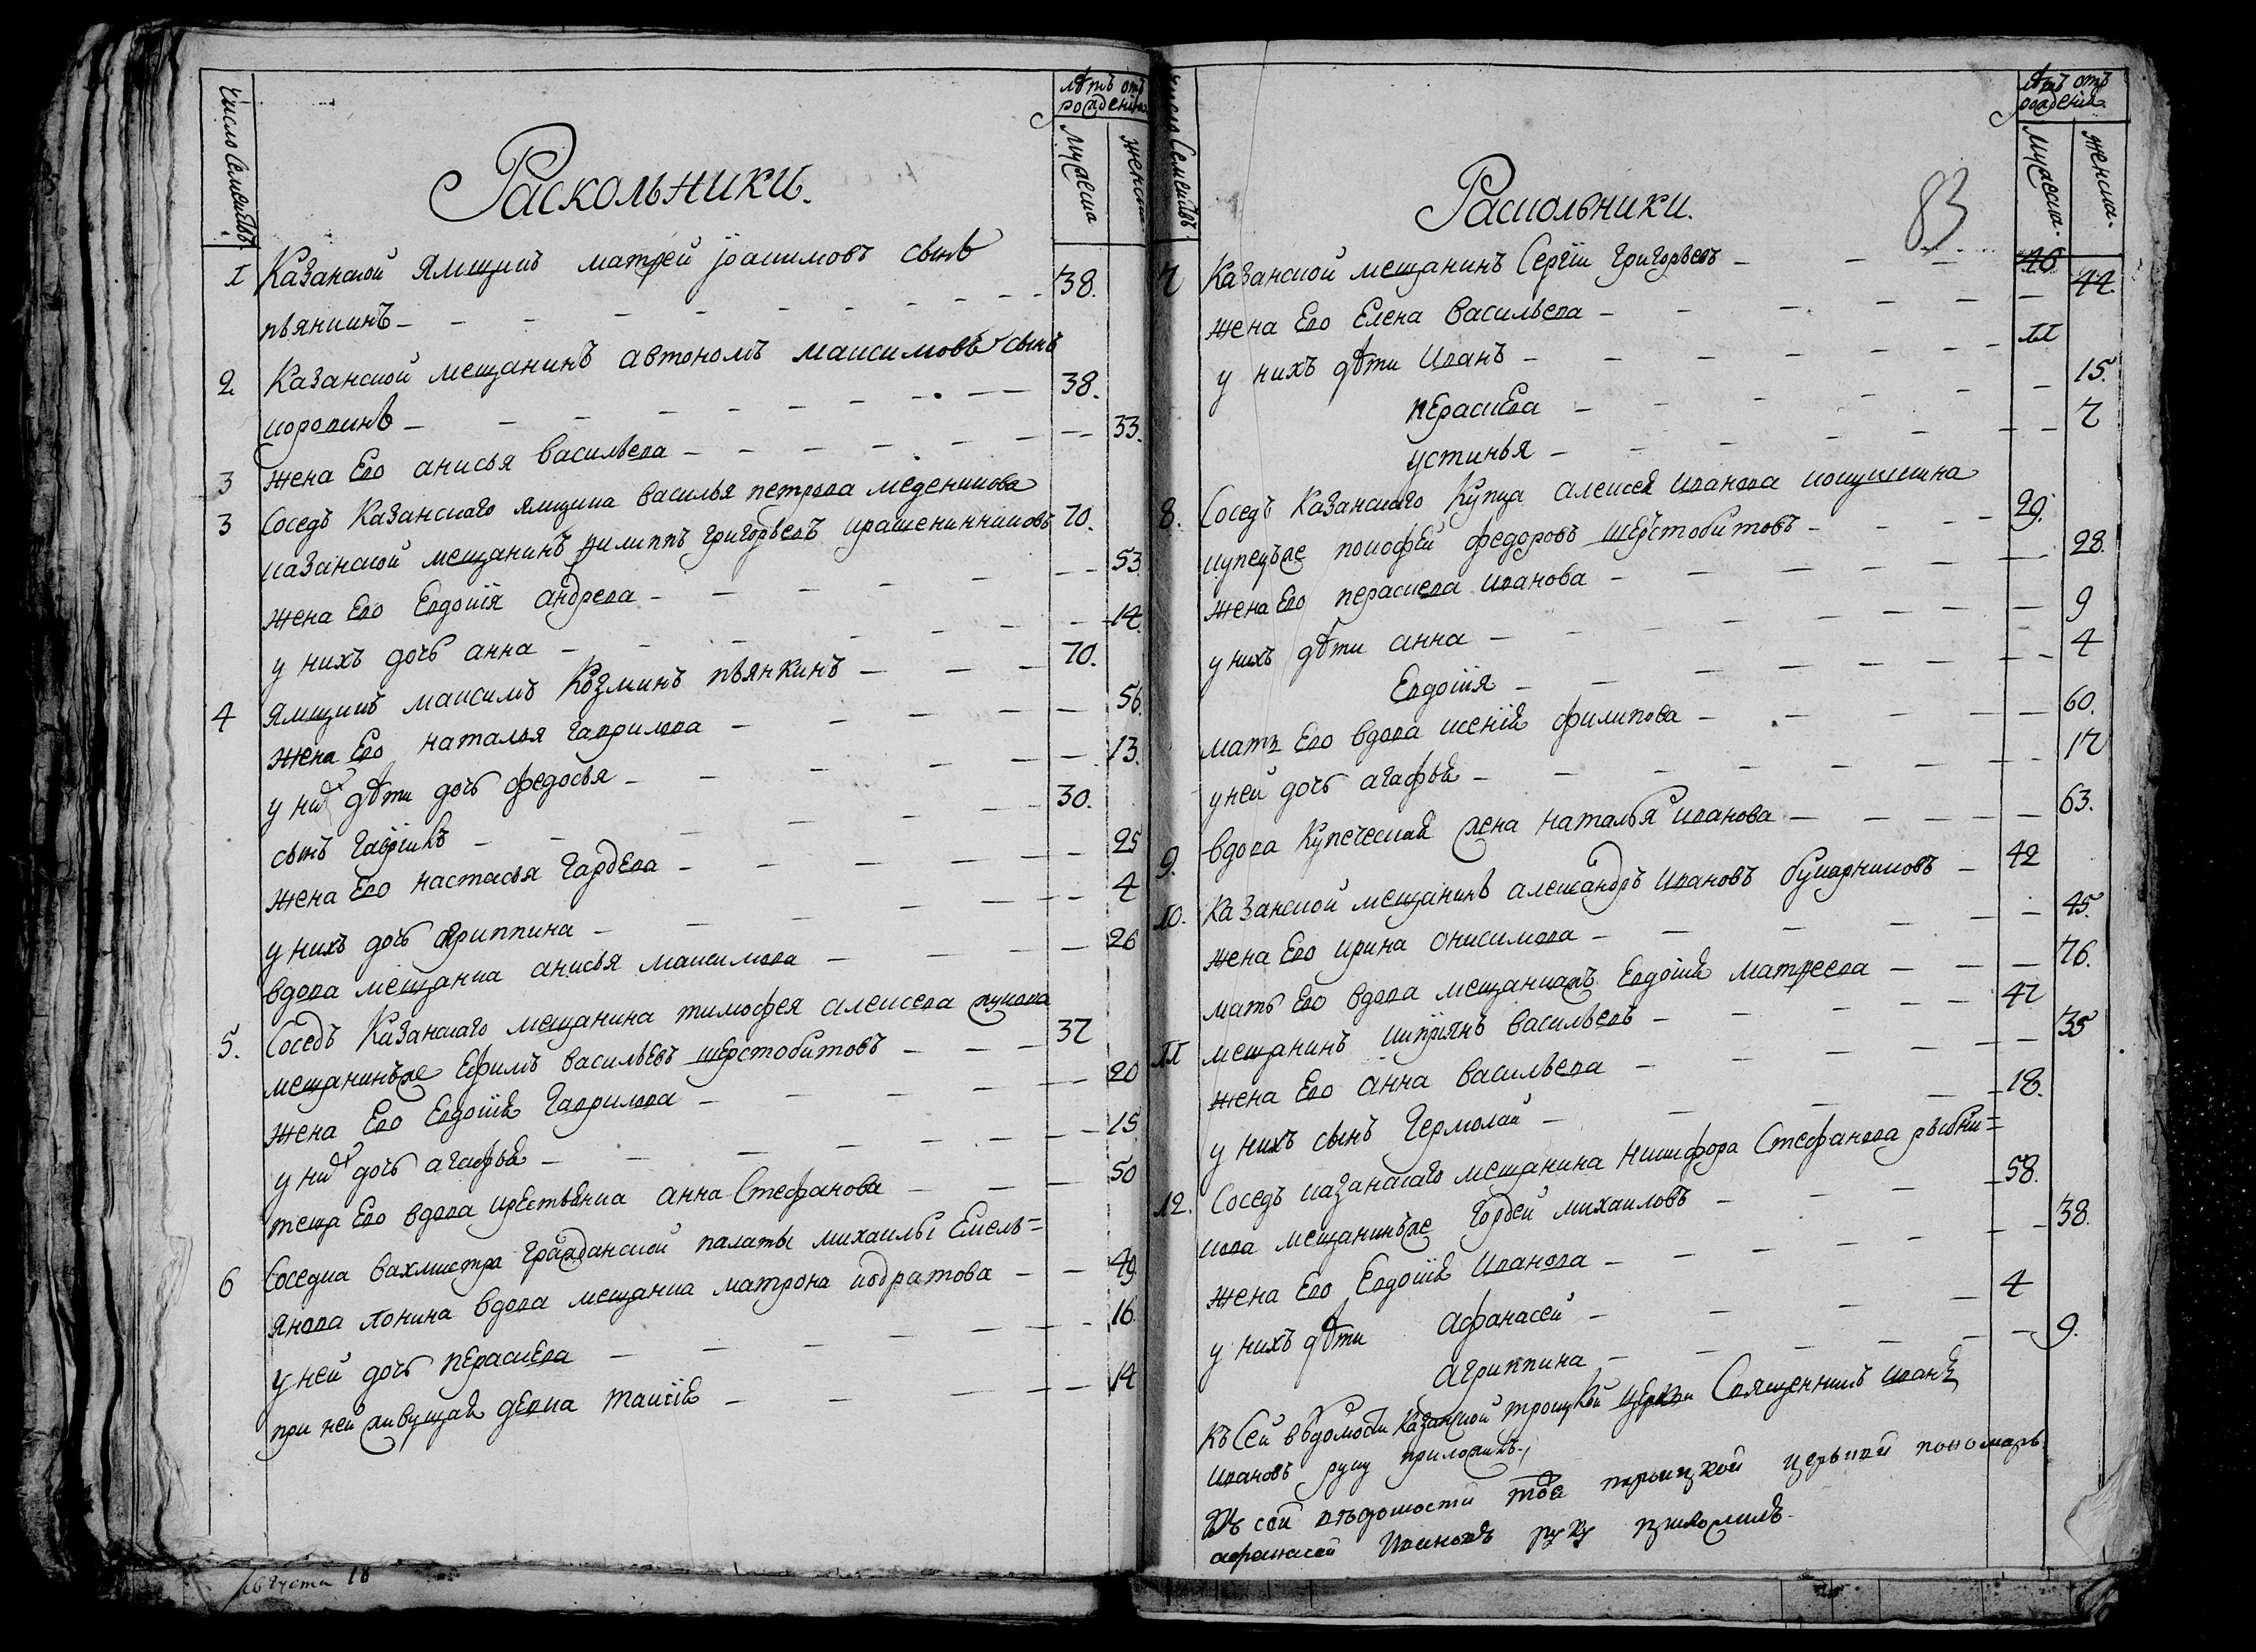 Число Семействъ.
Лѣтъ отъ
рожденія
Мужеска
Женска
Раскольники.
1 Казанской Ямщикъ матфей іоакимовъ сынъ
пьянкинъ — 38.
2 Казанской мещанинъ автономъ максимовъ сынъ
коровинъ — 38.
3 жена Его анисья васильева — 33.
3 Соседъ Казанскаго ямщика василья петрова меденикова
казанской мещанинъ филиппъ григорьевъ крашенинниковъ 70.
жена Его Евдокія андреева — 53
у нихъ дочь анна — 14.
4 ямщикъ максимъ Козминъ пьянкинъ — 70.
жена Его наталья гаврилова — 56.
у них дѣти дочь федосья — 13.
сынъ гаврилъ — 30.
жена Его настасья гордѣева — 25
у нихъ дочь агриппина — 4
вдова мещанка анисья максимова — 26
5. Соседъ Казанскаго мещанина тимофея алексеева жукова
мещанинъже Ефимъ васильевъ шерстобитовъ — 37
жена Его Евдокія гаврилова — 20
у них дочь агафья — 15
теща Его вдова крестьянка анна Стефанова — 50
6 Соседка вахмистра гражданской палаты михаилы Емель=
янова вдова мещанка матрона кодратова — 49.
у ней дочь параскева — 16.
при ней живущая девка таисія — 14
августа 18
Число Семействъ.
Лѣтъ отъ
рожденія
Мужеска.
Женска.
Раскольники.
83
7 Казанской мещанинъ Сергій григорьевъ — 46
жена Его Елена васильева — 44.
у нихъ дѣти иванъ — 11
параскева — 15.
устинья — 7
8. Соседъ Казанскаго купца алексея иванова
купецъже шерстобитовъ — 29.
жена Его параскева иванова — 28.
у нихъ дѣти анна — 9
Евдокія — 4
мать Его вдова ксенія филипова — 60.
у ней дочь агафья — 17
9. вдова купеческая жена наталья иванова — 63.
10. Казанской мещанинъ александръ ивановъ — 42
жена Его ирина онисимова — 45.
мать Его вдова мещанская Евдокія матфеева — 76.
11 мещанинъ кипріянъ васильевъ — 47
жена Его анна васильева — 35
у нихъ сынъ Гермолай — 18.
12. Соседъ казанскаго мещанина никифора Стефанова рыбни=
кова мещанинъже гордей михаиловъ — 58.
жена Его Евдокія иванова — 38.
у нихъ дѣти афанасей — 4
агриппина — 9.
Къ Сей вѣдомости казанской троицкой церкви Священникъ иванъ
ивановъ руку приложилъ.
Къ сей вѣдомости тоя троицкой церкви пономарь
афанасей ивановъ руку приложилъ.